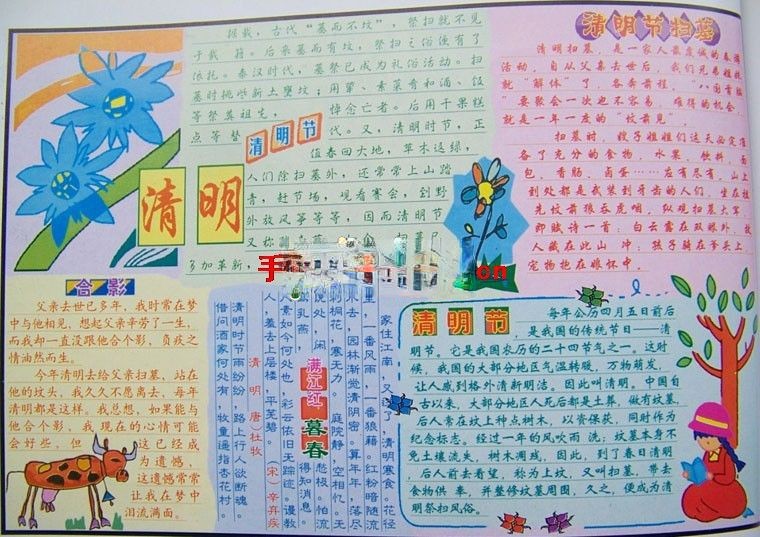 据载，古代“墓而不坟”，祭扫就不见
于载 籍。后来墓而有坟，祭扫之俗便有了
依托。秦汉时代，墓祭已成为礼俗活动。扫
墓时挑些新土壅坟；用荤、素菜肴和酒、饭
等祭奠祖先， 悼念亡者。后用干果糕
点等替 代。又，清明时节，正
值春回大地，草木返绿，
人们除扫墓外，还常常上山踏
青，赶节场，观看赛会，到野
外放风筝等等，因而清明节
多加革新，
清明节
清明
清明节扫墓
清明扫墓，是一家人最度诚的春游
活动，自从父亲去世后，我们兄弟姐妹
就“解体”了，各奔前程，
要聚会一次也不容易，难得的机会，
就是一年一度的“坟前见”。
扫墓时，嫂子姐姐们这天必定准
备了充分的食物，水果，饮料，面
包，香肠，卤蛋……应有尽有，山上
到处都是我装到牙齿的人们，坐在祖
先坟前狼吞虎咽，纵观扫墓大军，
即赋诗一首：白云露在双眼外，故
人藏在此山 冲；孩子骑在爷头上，
宠物抱在眼怀中。
合影
父亲去世已多年，我时常在梦
中与他相见，想起父亲辛劳了一生，
而我却一直没跟他合个影，负疚之
情油然而生。
今年清明去给父亲扫墓，站在
他的坟头，我久久不愿离去，每年
清明都是这样。我总想，如果能与
他合个影，我现在的心情可能
会好些，但 这已经成
为遗憾，
这遗憾常常
让我在梦中
泪流满面。
满江红
暮春
家住江南，又过了，清明寒食。花径
里，一番风雨，一番狼籍。红粉暗随流
水去，园林渐觉清阴密。算年年，落尽
刺桐花，寒无力。 庭院静，空相忆。无
说处，闲愁极。怕流
莺乳燕，得知消息。
素如今何处也，彩云依旧无踪迹。谩教
人，羞去上层楼，平芜碧。 （宋）辛弃疾
清明（唐）杜牧
清明时节雨纷纷，路上行人欲断魂。
借问酒家何处有，牧童遥指杏花村。
清明节
每年公历四月五日前后
，是我国的传统节日——清
明节。它是我国农历的二十四节气之一。这时
候，我国的大部分地区气温转暖，万物萌发，
让人感到格外清新明洁。因此叫清明。中国自
古以来，大部分地区人死后都是土葬，做有坟墓，
后人常在坟上种点树木，以资保获，同时作为
纪念标志。经过一年的风吹雨 洗；坟墓本身不
免土壤流失，树木凋残，因此，到了春日清明
，后人前去看望，称为上坟，又叫扫墓，带去
食物供 奉，并整修坟墓周围，久之，便成为清
明祭扫风俗。